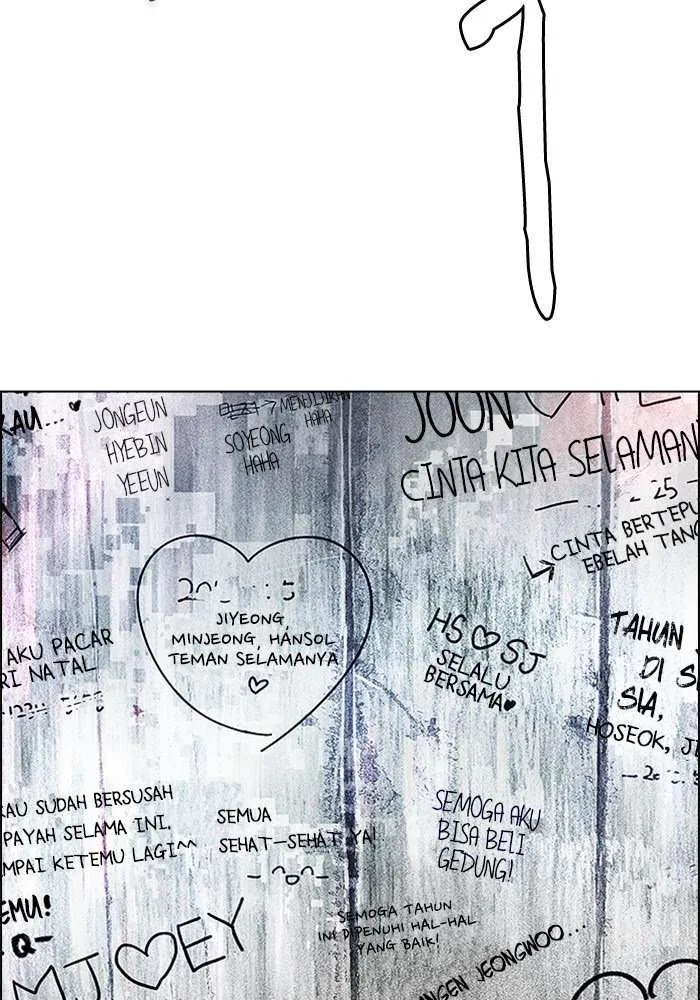 1
KAU...♥
JONGEUN
HYEBIN
YEEUN
SOYEONG
HAHA
HAHA
JOON
CINTA KITA SELAMAN
25
CINTA BERTEPU
EBELAH TANG
JIYEONG,
MINJEONG, HANSOL
TEMAN SELAMANYA
♡
AKU PACAR
RI NATAL
HS♡SJ
SELALU
BERSAMA♥
TAHUN
DI S
SIA,
HOSEOK, J
KAU SUDAH BERSUSAH
PAYAH SELAMA INI.
MPAI KETEMU LAGI^^
SEMUA
SEHAT-SEHAT YA!
SEMOGA AKU
BISA BELI
GEDUNG!
EMU!
-Q-
MJ♡EY
SEMOGA TAHUN
INI DIPENUHI HAL-HAL
YANG BAIK!
NGEN JEONGWOO...